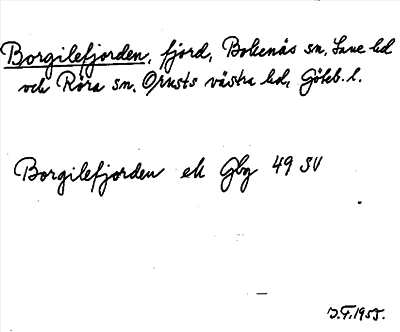 Borgilefjorden, fjord, Bokenäs sn. Lane hd
och Röra sn. Orusts västra hd, Göteb. l.
Borgilefjorden ek Gbg 49 SV
J.F. 1955.